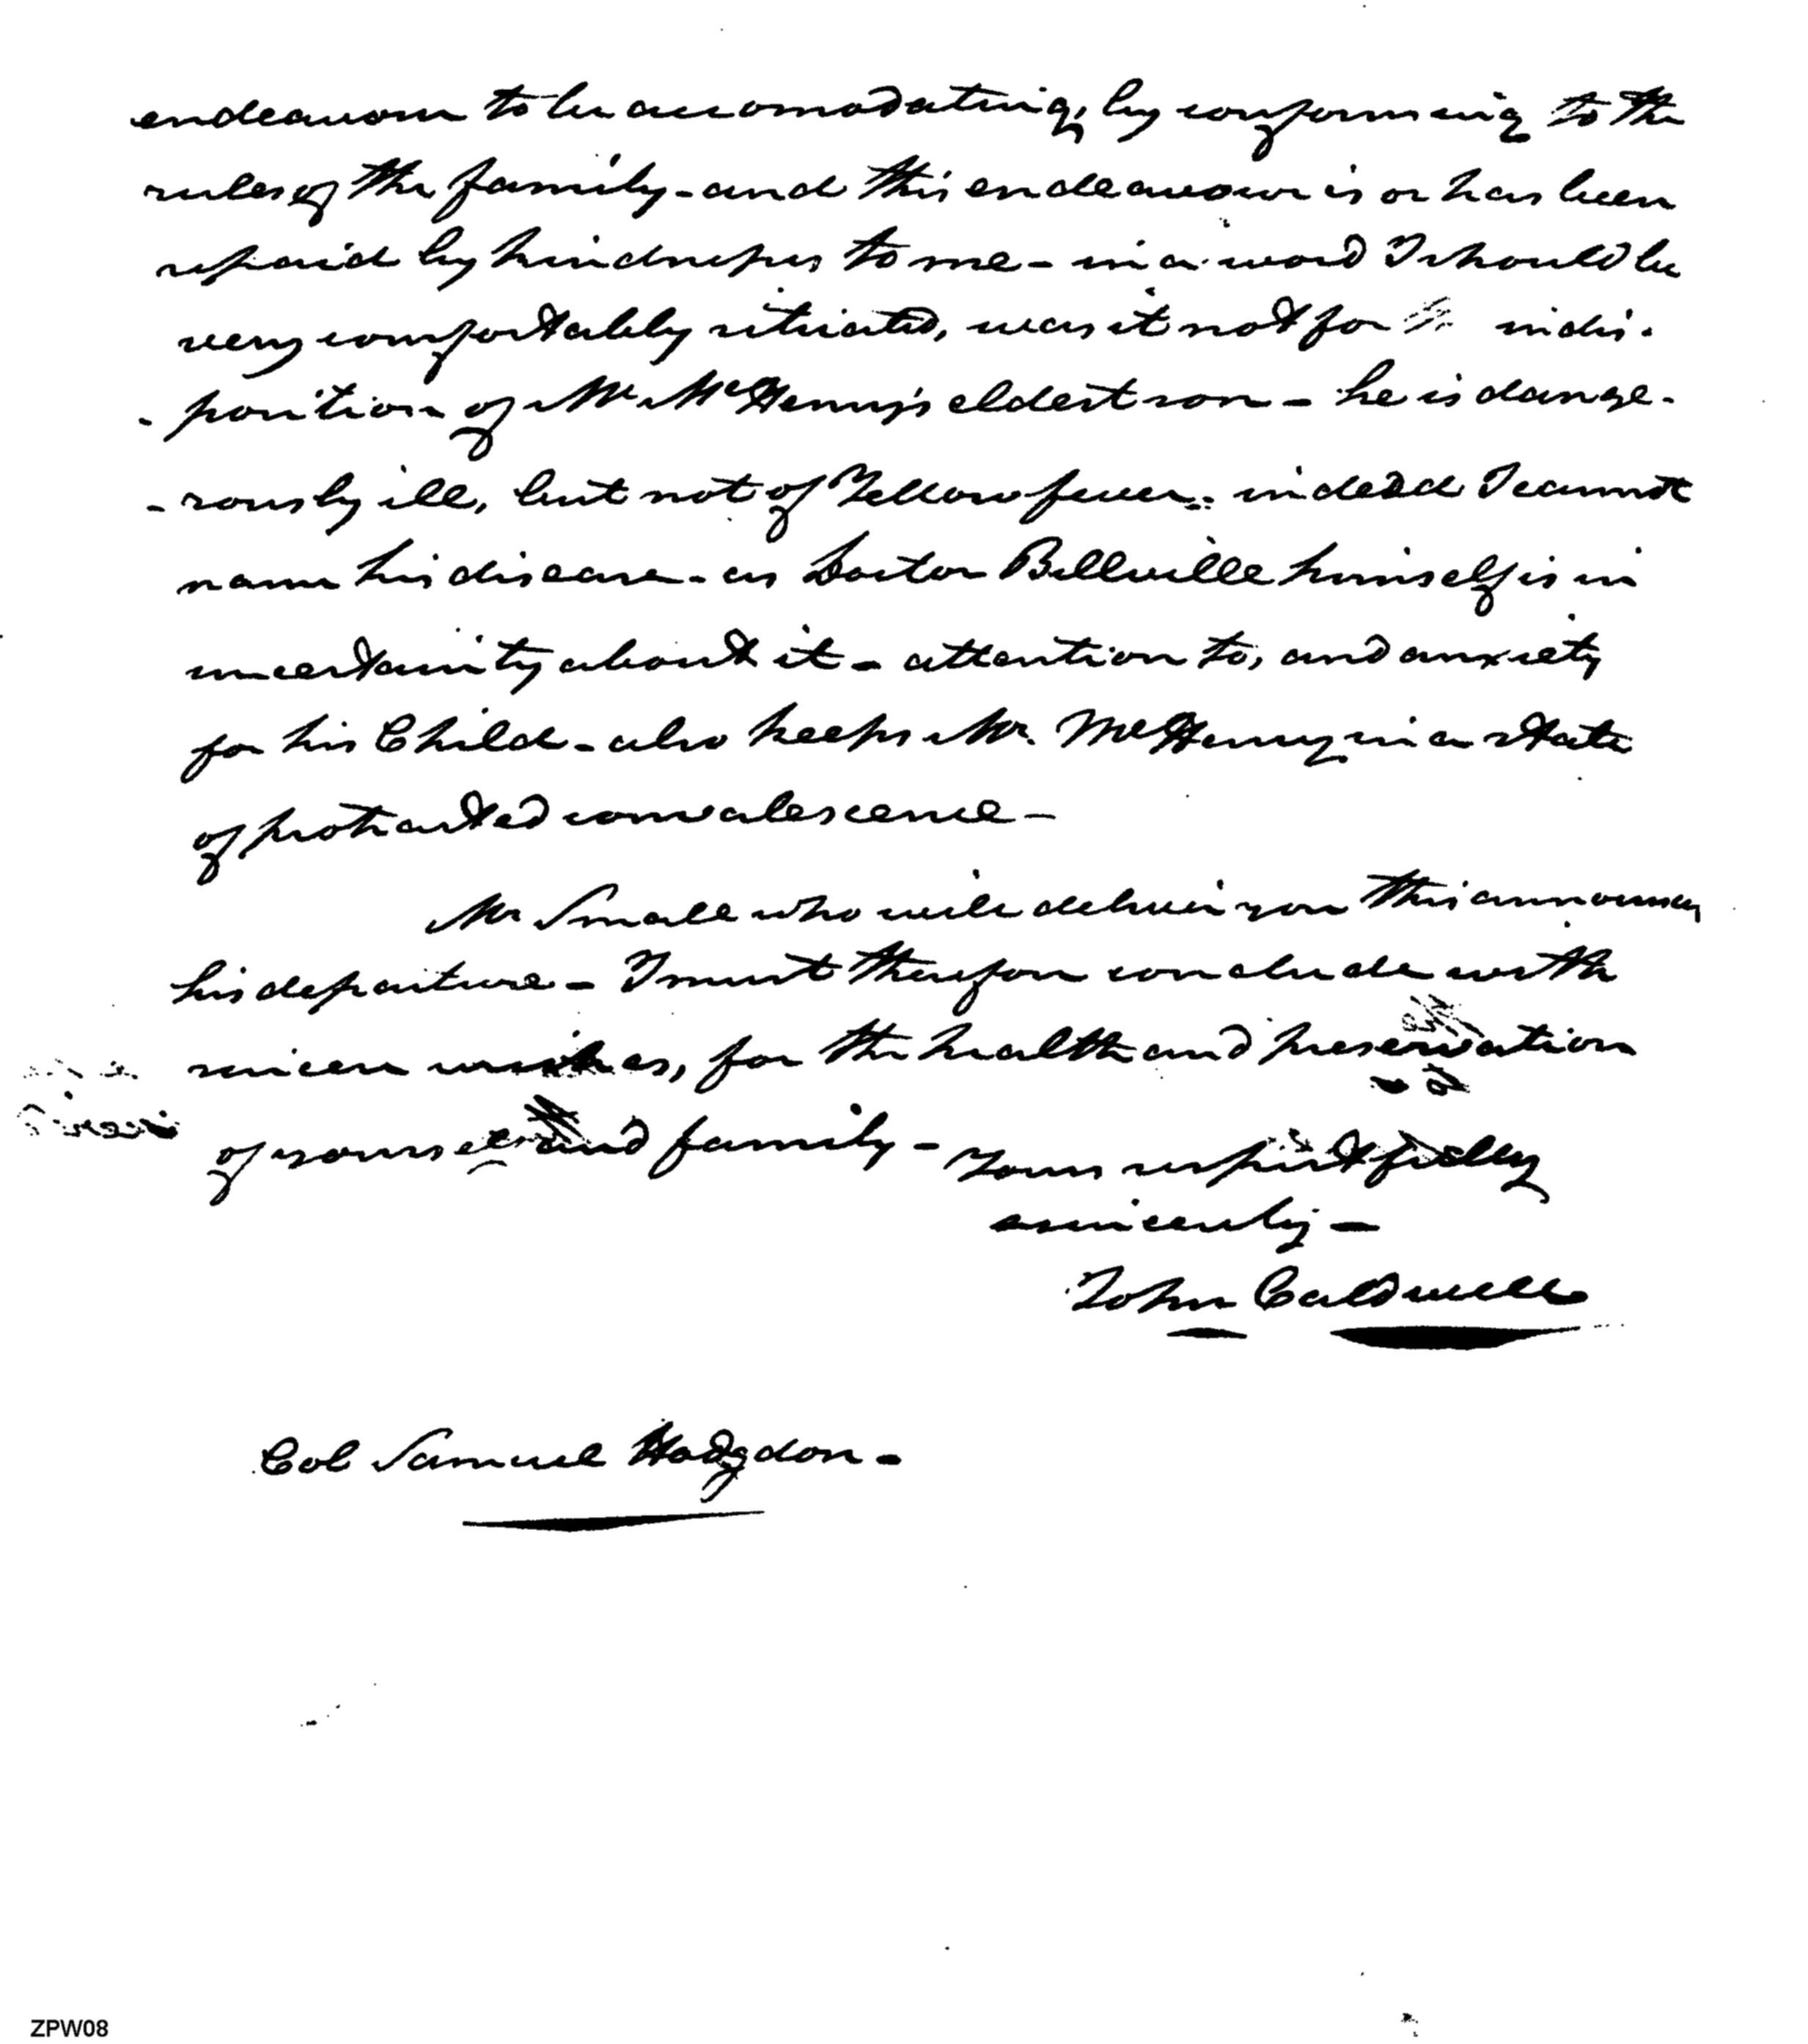 endeavour to be accomodating, by conforming to the
rules of the family - and this endeavour is or has been
repaid by kindnesses to me - in a word I should be
very comfortably situated, was it not for indis-
- position of Mr McHenry's eldest son - he is dange-
- rously ill, but not of Yellow fever: indeed I cannot
name his disease - as Doctor Bellville himself is in
uncertainity about it - attention to, and anxiety
for his Child - also keeps Mr. McHenry in a state
of protracted convalescence -
Mr Small who will deliver you this announces
his departure - I must therefore conclude with
sincere wishes, for the health and preservation
of yourself and family - Yours respectfully
sincerely -
John Caldwell
Col Samuel Hodgdon -
ZPW08